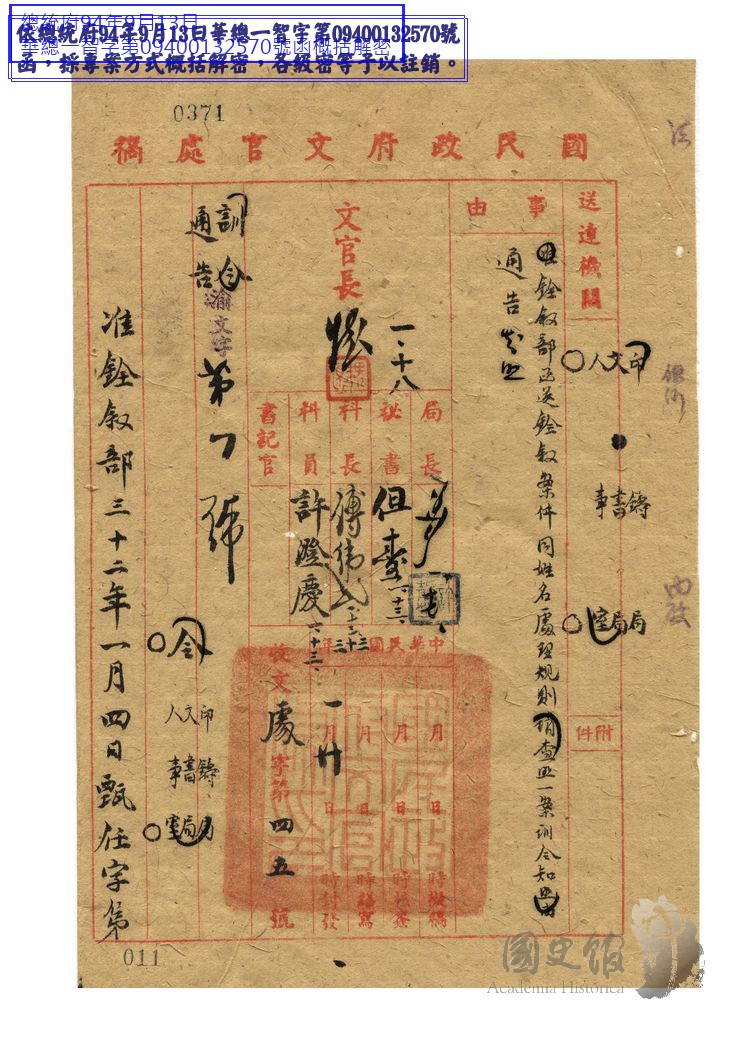 總統府94年9月13日
華總一智字第09400132570號函概括解密
依總統府94年9月13日華總一智字第09400132570號
函，採專案方式概括解密，各級密等予以註銷。
0371
國民政府文官處稿
送達機關
印文人
鑄書事
局局室
附件
事由
銓敘部函送銓敘案件同姓名處理規則
查照一案訓令知照
通告
文官長
一、十八
局長
秘書
但燾
科長
科員
許澄慶
書記官
中華民國三十二年
月 日 時擬稿
月 日 時核簽
月 日 時繕寫
月 日 時封發
收文處字第四五號
訓令
通告
渝文字
第 號
令
印文人
鑄書事
局室
准銓敘部三十二年一月四日甄任字第
011
國史館
Academia Historica